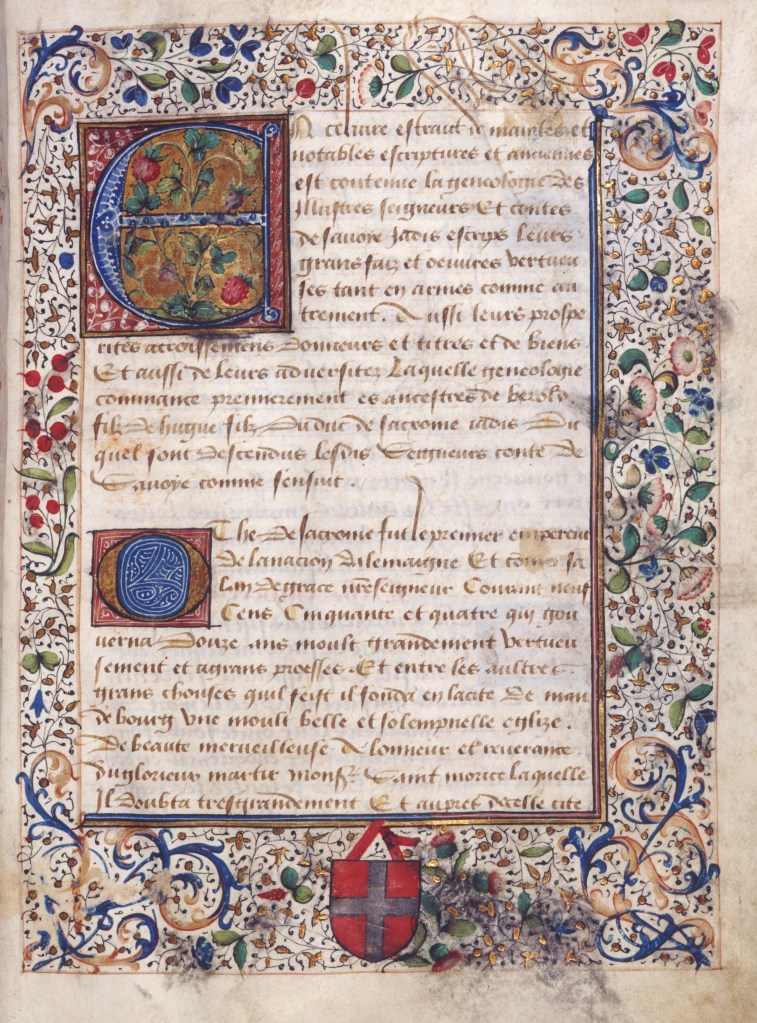 En ce livre estraut de maintes et
notables escriptures et anciennes
est contenue la geneologie des
Illustres seigneurs Et contes
de savoye Jadis escrips leurs
grans faiz et oeuvres vertueu
ses tant en armes comme au
trement. Aussi leurs prospe
rites accoissemens donneurs et titres et de biens
Et aussi de leurs adversitez Laquelle geneologie
commance premierement es ancestres de berold
filz de hugue filz du duc de saxonie iadis Du
quel sont descendus lesdis Seigneurs conte de
Savoye comme sensuit
Othe de saxonie fut le premier empereur
de la nacion dalemaigne Et
lan de grace nreseigneur Courant neuf
Cens Cinquante et quatre qui gou
verna Douze ans moult grandement vertueu
sement et agrans proesses. Et entre les aultres
grans chouses quil feist il fonda en lacite De man
debourg Une moult belle et solempnelle eglize.
De beaute merveilleuse A lonneur et reverance
du glorieux martir monsr. Saint morice laquelle
Il doubta tresgrandement Et aupres dicelle cite